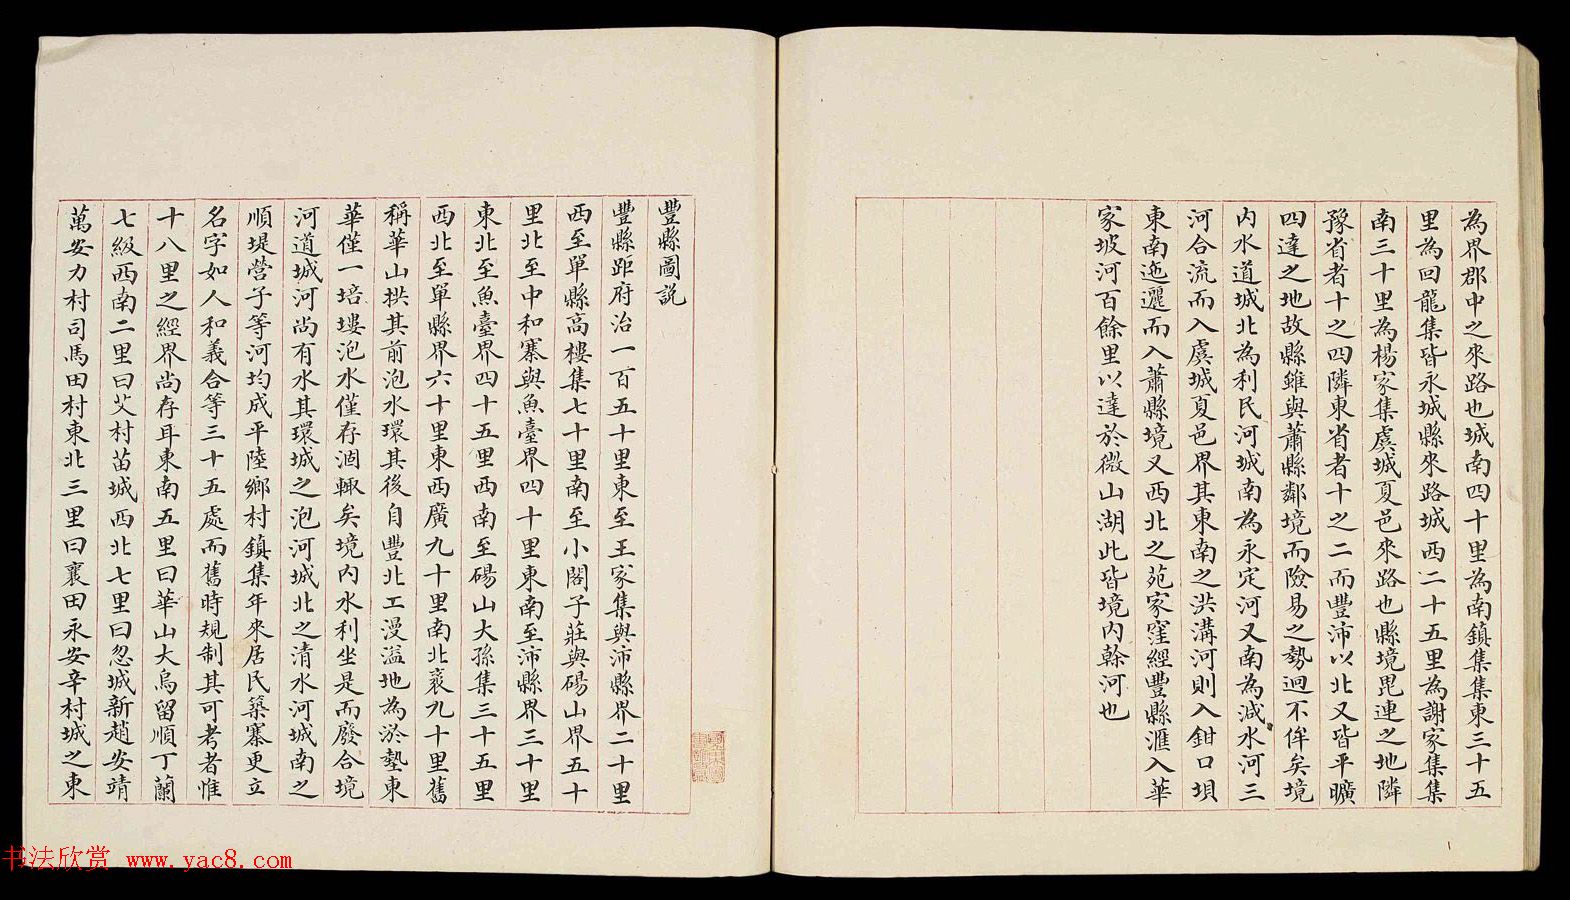 為界郡中之來路也城南四十里為南鎮集集東三十五
里為回龍集皆永城縣來路城西二十五里為謝家集集
南三十里為楊家集虞城夏邑來路也縣境毘連之地隣
豫省者十之四隣東省者十之二而豐沛以北又皆平曠
四達之地故縣雖與蕭縣鄰境而險易之勢迥不侔矣境
内水道城北為利民河城南為永定河又南為減水河三
河合流而入虞城夏邑界其東南之洪溝河則入鉗口垻
東南迤邐而入蕭縣境又西北之苑家窪經豐縣滙入華
家坡河百餘里以達於微山湖此皆境内幹河也
豐縣圖說
豐縣距府治一百五十里東至王家集與沛縣界二十里
西至單縣高樓集七十里南至小閻子莊與碭山界五十
里北至中和寨與魚臺界四十里東南至沛縣界三十里
東北至魚臺界四十五里西南至碭山大孫集三十五里
西北至單縣界六十里東西廣九十里南北袤九十里舊
稱華山拱其前泡水環其後自豐北工漫溢地為淤墊東
華僅一培塿泡水僅存涸輙矣境内水利坐是而廢合境
河道城河尚有水其環城之泡河城北之清水河城南之
順堤營子等河均成平陸鄉村鎮集年來居民築寨更立
名字如人和義合等三十五處而舊時規制其可考者惟
十八里之經界尚存耳東南五里曰華山大烏留順丁蘭
七級西南二里曰艾村苗城西北七里曰忽城新趙安靖
萬安力村司馬田村東北三里曰襄田永安辛村城之東
书法欣赏 www.yac8.com